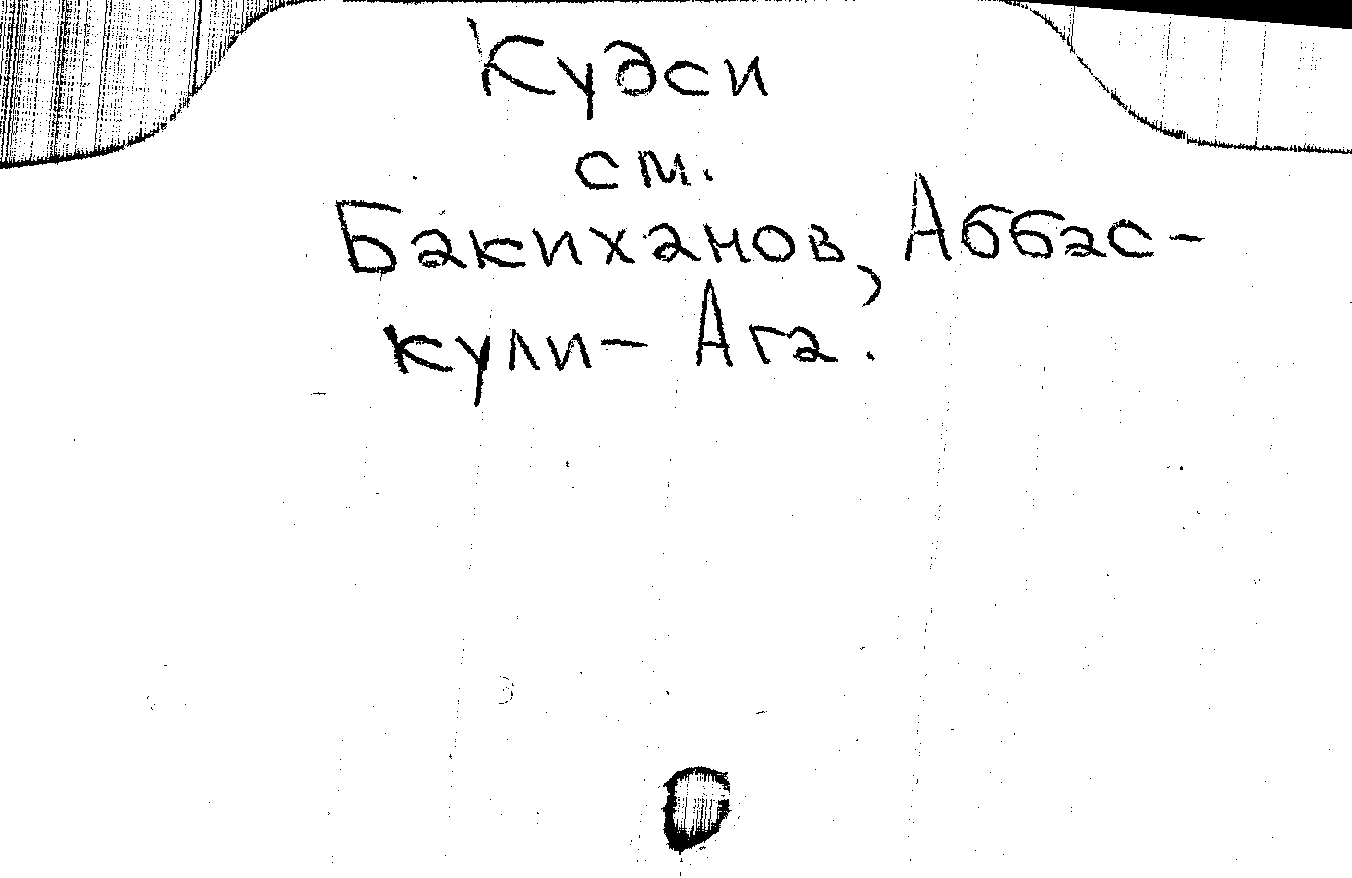 Кудси
см.
Бакиханов, Аббас-
кули-Ага.